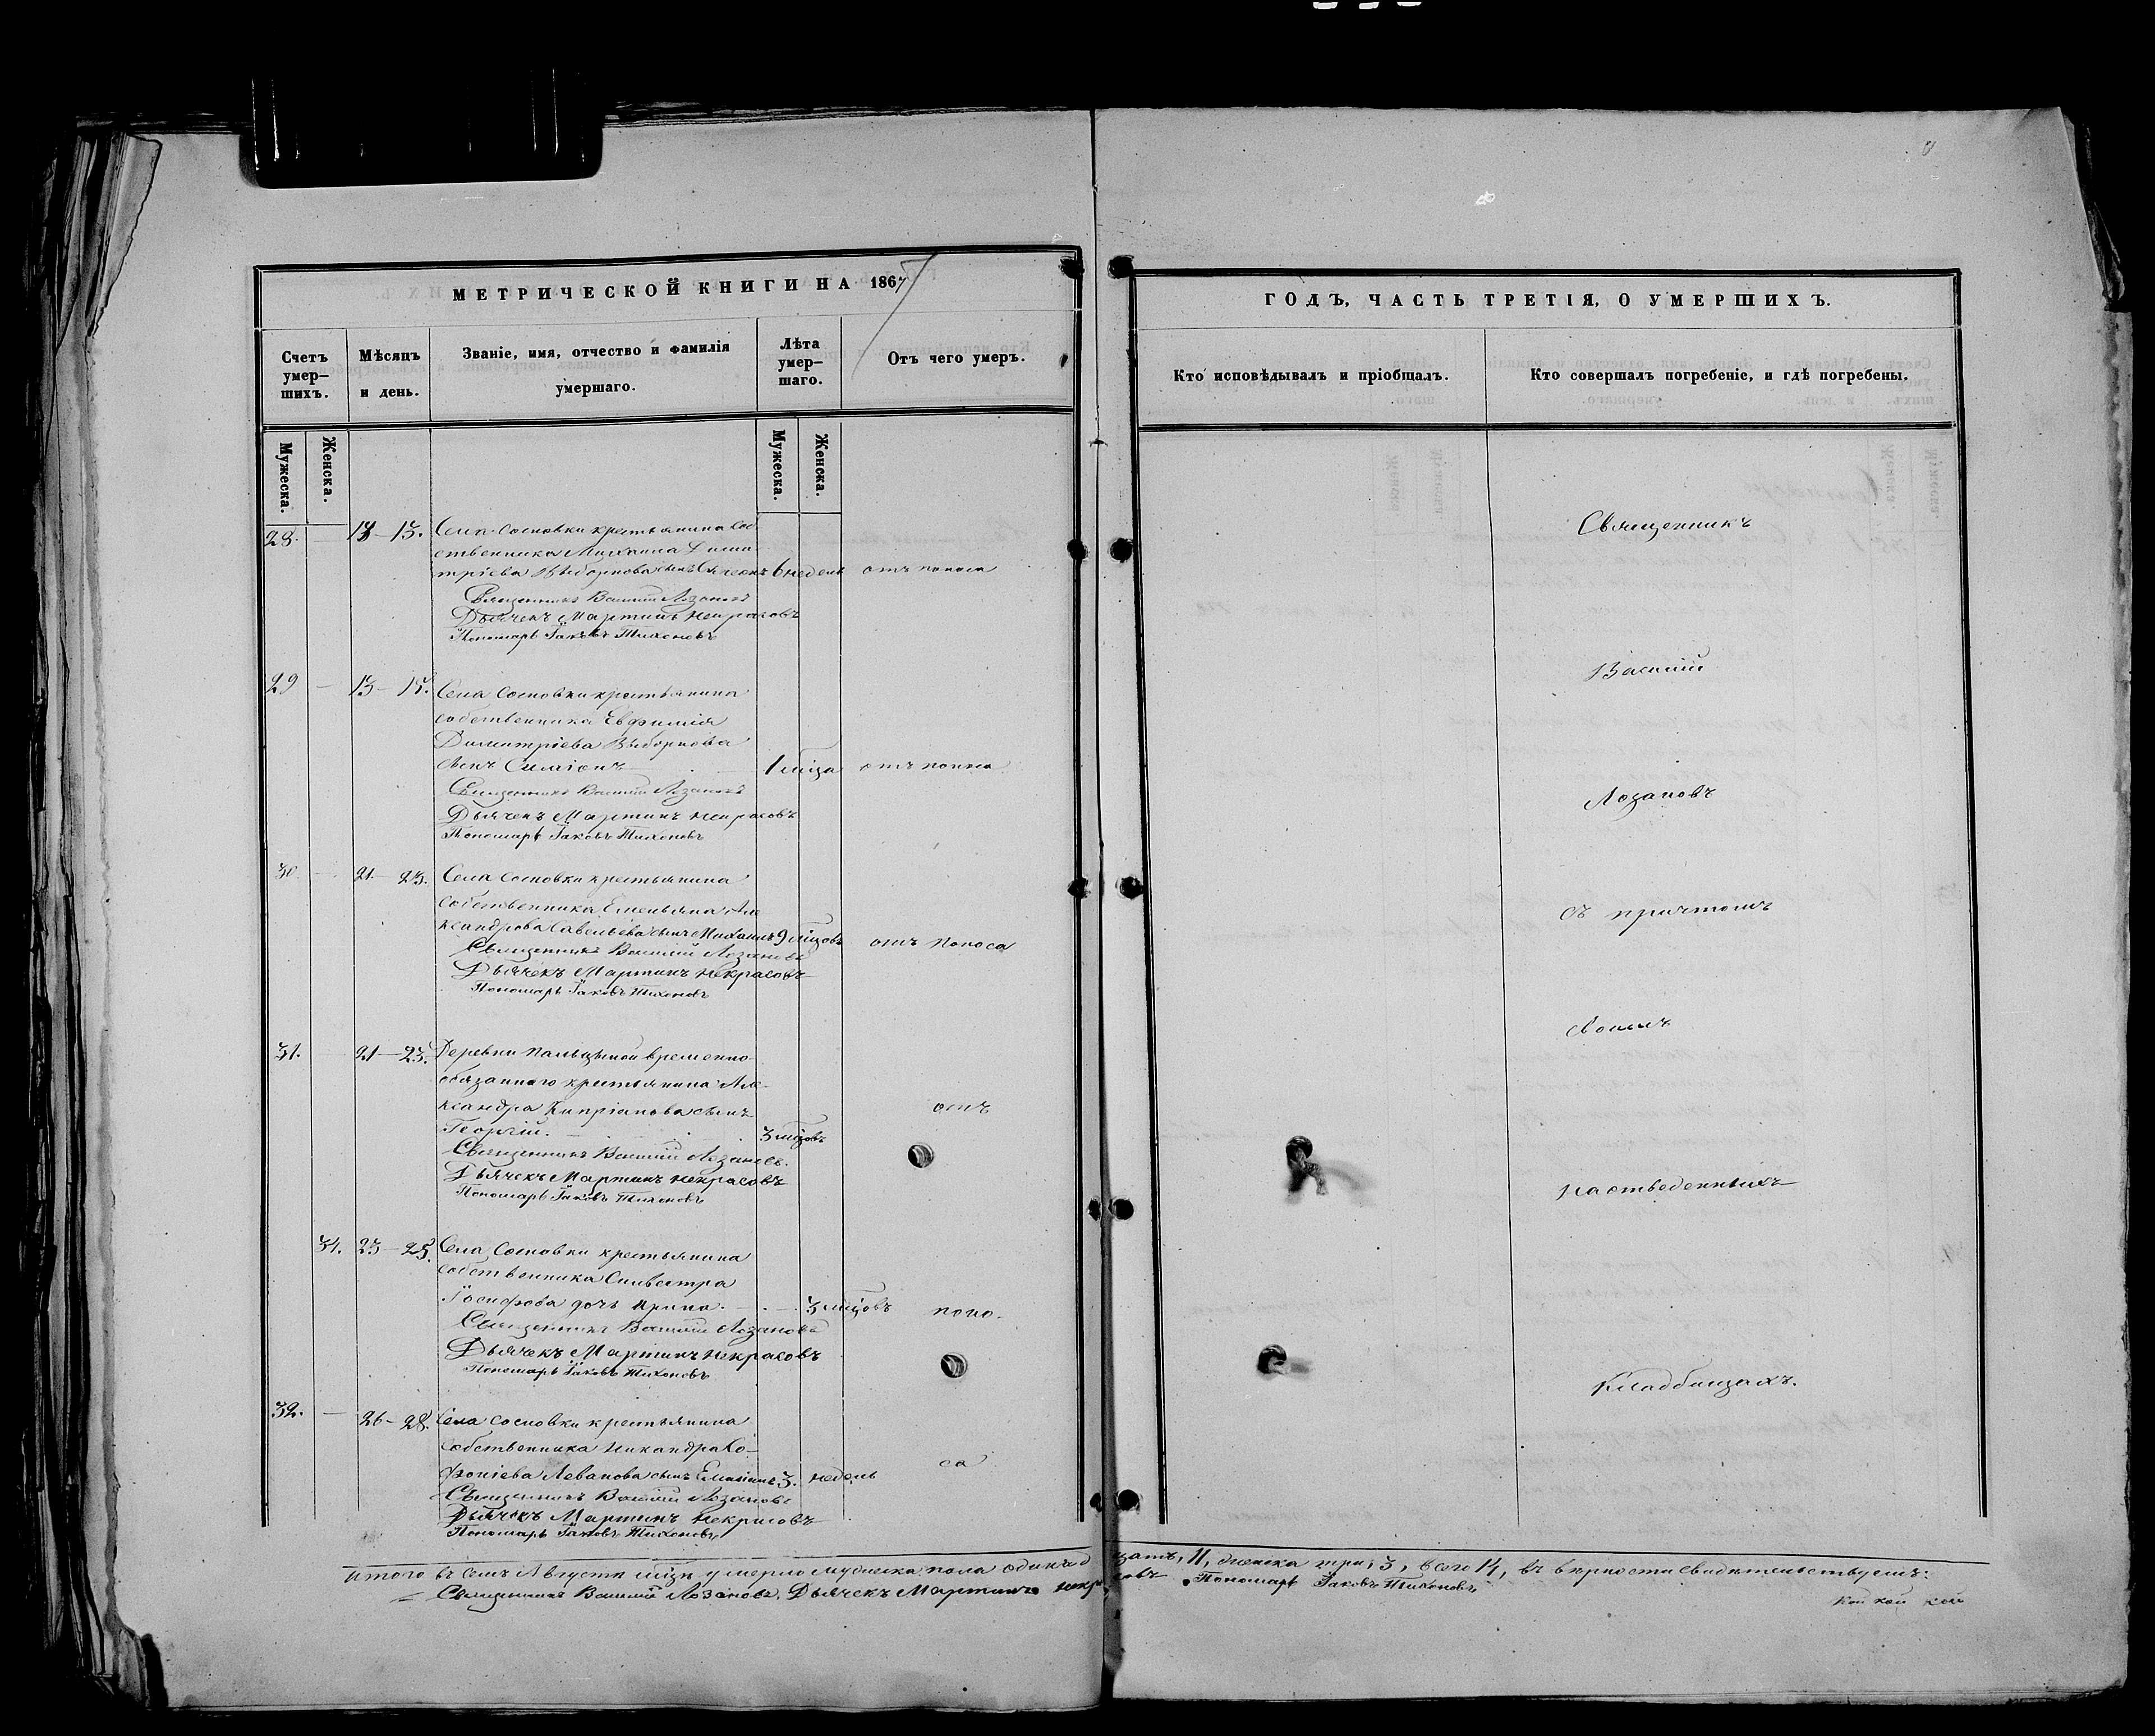 МЕТРИЧЕСКОЙ КНИГИ НА 1867
Счетъ умер-
шихъ.
Мѣсяцъ
и день.
Званіе, имя, отчество и фамилія
умершаго.
Лѣта
умер-
шаго.
Отъ чего умеръ.
Мужеска.
Женска.
Мужеска.
Женска.
28. — 13. Села Сосновки крестьянина соб
ственника Михаила Дими
тріева Выборнова сынъ 6 недель отъ поноса
Священникъ Василій Лозановъ
Дьячекъ Мартинъ Некрасовъ
Пономарь Іаковъ Тихоновъ
29 — 13 — 15. Села Сосновки крестьянина
собственника Евфимія
Димитріева Выборнова
сынъ Симіонъ 1 мѣца отъ поноса
Священникъ Василій Лозановъ
Дьячекъ Мартинъ Некрасовъ
Пономарь Іаковъ Тихоновъ
30. — 21 — 23. Села Сосновки крестьянина
собственника Емельяна Але
ксандрова Савельева сынъ Михаилъ 9 мѣцовъ отъ поноса
Священникъ Василій Лозановъ
Дьячекъ Мартинъ Некрасовъ
Пономарь Іаковъ Тихоновъ
31. — 21 — 23. Деревни Пальциной временно-
обязаннаго крестьянина Але-
ксандра Кипріанова сынъ отъ
Георгій. 3 мѣцовъ
Священникъ Василій Лозановъ.
Дьячекъ Мартинъ Некрасовъ
Пономарь Іаковъ Тихоновъ
31. 23 — 25. Села Сосновки крестьянина
собственника Силвестра
Іосифова дочь Ирина. 3 мѣцовъ поно-
Священникъ Василій Лозановъ
Дьячекъ Мартинъ Некрасовъ
Пономарь Іаковъ Тихоновъ
32. — 26 — 28. Села Сосновки крестьянина
собственника Никандра Со-
фоніева Леванова сынъ 3. недель са
Священникъ Василій Лозановъ
Дьячекъ Мартинъ Некрасовъ
Пономарь Іаковъ Тихоновъ
ГОДЪ, ЧАСТЬ ТРЕТІЯ, О УМЕРШИХЪ.
Кто исповѣдывалъ и пріобщалъ.
Кто совершалъ погребеніе, и гдѣ погребены.
Священникъ
Василій
Лозановъ
съ причтомъ
своимъ
на отведенныхъ
Кладбищахъ.
Итого въ семъ Августѣ мѣцѣ умерло мужеска пола одинадцать, 11, женска три, 3, всего 14, въ вѣрности свидѣтельствуемъ:
Священникъ Василій Лозановъ. Дьячекъ Мартинъ Некрасовъ. Пономарь Іаковъ Тихоновъ